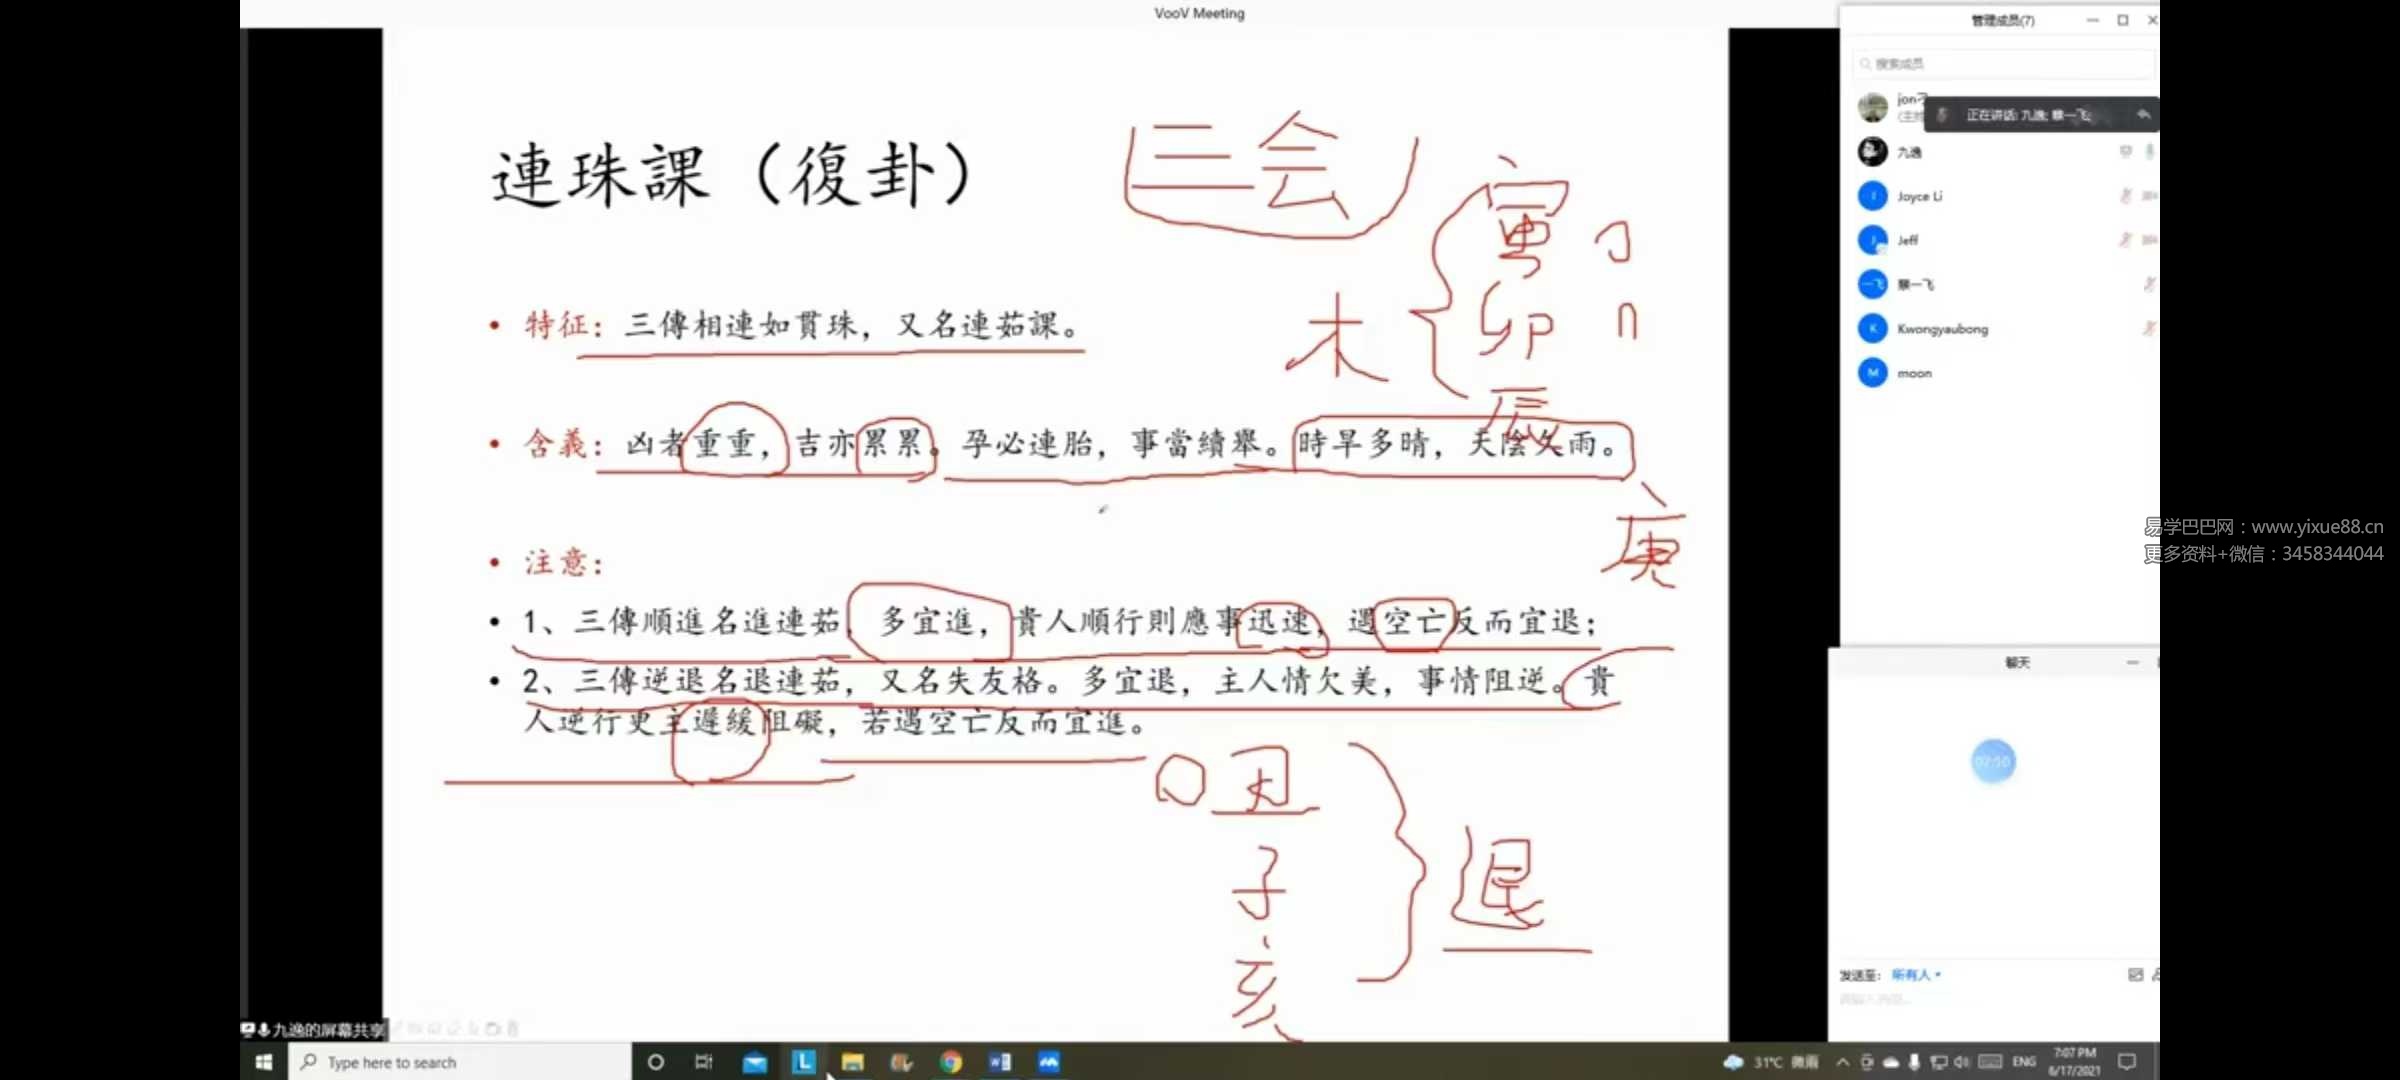 VooV Meeting
管理成员(7)
搜索成员
正在讲话: 九逸; 蔡一飞;
九逸
Joyce Li
Jeff
蔡一飞
Kwongyaubong
moon
連珠課（復卦）
三会
寅
卯
辰
木
• 特征：三傳相連如貫珠，又名連茹課。
• 含義：凶者重重，吉亦累累。孕必連胎，事當續舉。時旱多晴，天陰久雨。
庚
• 注意：
• 1、三傳順進名進連茹，多宜進，貴人順行則應事迅速，遇空亡反而宜退；
• 2、三傳逆退名退連茹，又名失友格。多宜退，主人情欠美，事情阻逆。貴
人逆行更主遲緩阻礙，若遇空亡反而宜進。
丑
子
亥
退
易学巴巴网：www.yixue88.cn
更多资料+微信：3458344044
聊天
02:50
发送至: 所有人
九逸的屏幕共享
Type here to search
31°C 微雨
ENG
7:07 PM
6/17/2021